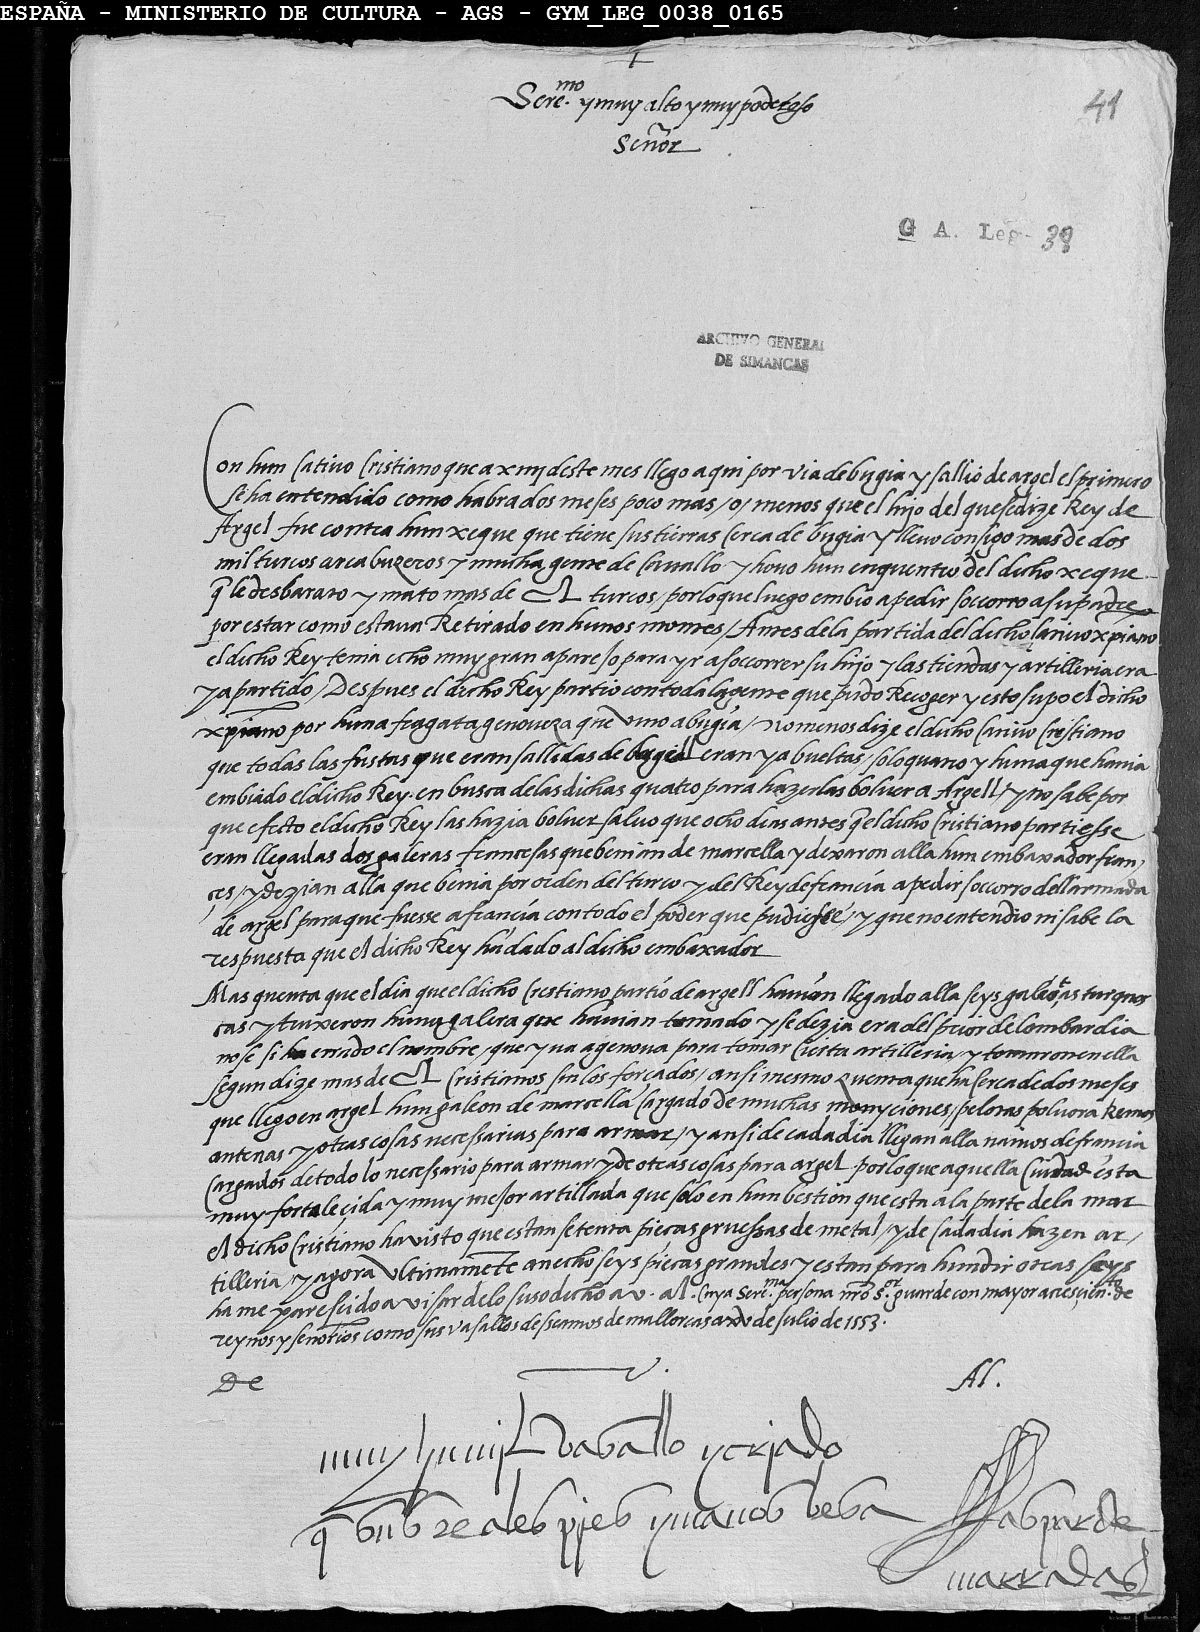 ESPAÑA - MINISTERIO DE CULTURA - AGS - GYM_LEG_0038_0165
41
Sere.mo y muy alto y muy poderoso
Señor
G A. Leg- 38
ARCHIVO GENERAL
DE SIMANCAS
Con hun cativo cristiano que a xiiij deste mes llego aqui por via de bugia y sallio de argel el primero
se ha entendido como habra dos meses poco mas /o/ menos que el hijo del que se dize Rey de
Argel fue contra hun xeque que tiene sus tierras cerca de bugia y llevo consigo mas de dos
mil turcos arcabuzeros y mucha gente de cavallo y hovo hun enquentro del dicho xeque
q̃ le desbarato y mato mas de turcos / por lo que luego embio a pedir soccorro a su padre
por estar como estava Retirado en hunos montes / Antes de la partida del dicho cativo xpiano
el dicho Rey tenia echo muy gran aparejo para yr a soccorrer su hijo y las tiendas y artilleria era
ya partido / Despues el dicho Rey partio con toda la gente que pudo Recoger y esto supo el dicho
xpiano por huna fragata genoveza que vino a bugia / no menos dize el dicho cativo cristiano
que todas las fustas que eran sallidas de argell eran ya bueltas / solo quatro y huna que havia
embiado el dicho Rey en busca de las dichas quatro para hazerlas bolver a Argell / y no sabe por
que efecto el dicho Rey las hazia bolver salvo que ocho dias antes q̃ el dicho cristiano partiesse
eran llegadas dos galeras francesas que benian de marcella y dexaron alla hun embaxador fran/
ces / y dezian alla que benia por orden del turco y del Rey de francia a pedir soccorro dell armada
de argel para que fuesse a francia con todo el poder que pudiesse / y que no entendio ni sabe la
respuesta que el dicho Rey ha dado al dicho embaxador
Mas quenta que el dia que el dicho crestiano partio de argell havian llegado alla seys galeotas turques
cas y truxeron huna galera que havian tomado y se dezia era del prior de lombardia
no se si ha errado el nombre / que yva a genova para tomar cierta artilleria / y tomaron en ella
segun dize mas de cristianos sin los forçados / ansi mesmo quenta que ha cerca de dos meses
que llego en argel hun galeon de marcella cargado de muchas monyciones / pelotas polvora Remos
antenas y otras cosas necessarias para armar / y ansi de cada dia llegan alla navios de francia
cargados de todo lo necessario para armar y de otras cosas para argel por lo que aquella ciudad esta
muy fortalecida y muy mejor artillada que solo en hun bestion que esta a la parte de la mar
el dicho cristiano ha visto que estan setenta pieças gruessas de metal / y de cada dia hazen ar/
tilleria / y agora ultimamente an echo seys pieças grandes y estan para hundir otras seys
ha me parescido avisar de lo susodicho a v. al. cuya Sere.ma persona nro s.or guarde con mayor acrescien.to de
reynos y señorios como sus vasallos desseamos de mallorcas a de Julio de 1553.
De v. Al.
muy humil vasallo y criado
q̃ sus reales pies y manos besa
Gaspar de
marradas